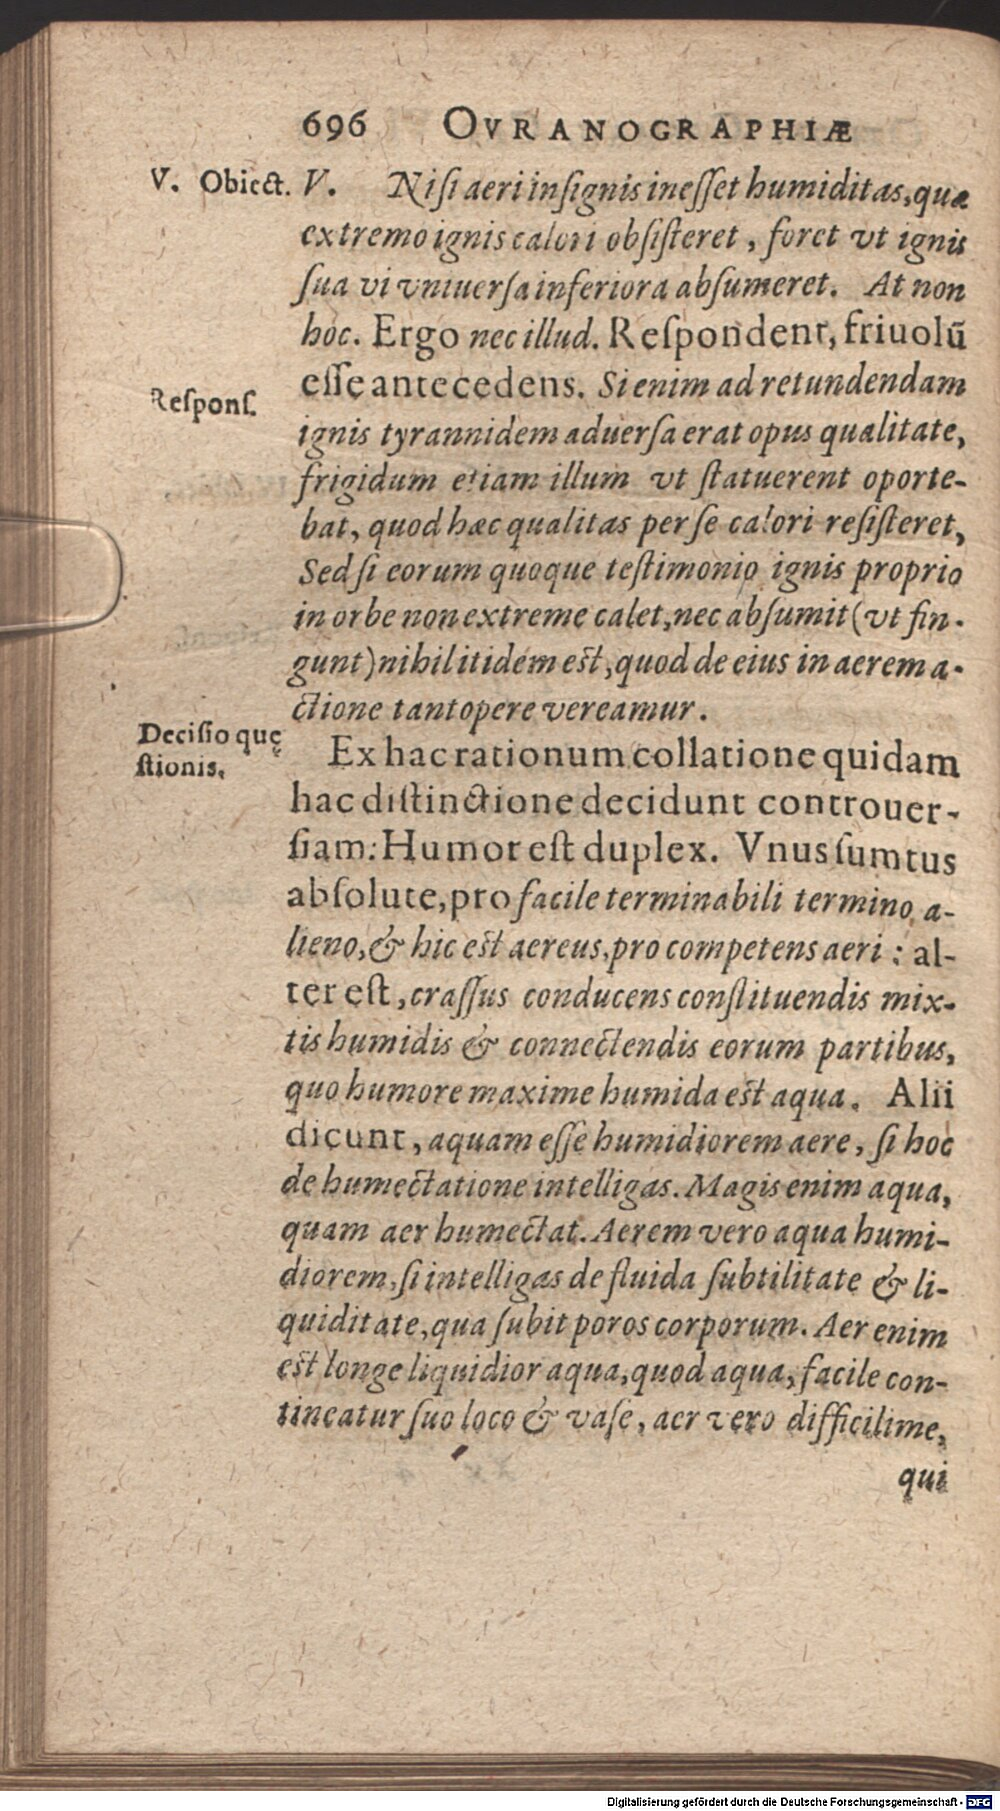 696 OVRANOGRAPHIÆ
V. Obiect. V. Niſi aeri inſignis ineſſet humiditas, quæ
extremo ignis calori obſiſteret, foret vt ignis
ſua vi vniuerſa inferiora abſumeret. At non
hoc. Ergo nec illud. Reſpondent, friuolū
Reſponſ.
eſſe antecedens. Si enim ad retundendam
ignis tyrannidem aduerſa erat opus qualitate,
frigidum etiam illum vt ſtatuerent oporte-
bat, quod hæc qualitas per ſe calori reſiſteret,
Sed ſi eorum quoque teſtimonio ignis proprio
in orbe non extreme calet, nec abſumit (vt fin-
gunt) nihil itidem eſt, quod de eius in aerem a-
ctione tantopere vereamur.
Deciſio quę
ſtionis.
Ex hac rationum collatione quidam
hac diſtinctione decidunt controuer-
ſiam: Humor eſt duplex. Vnus ſumtus
abſolute, pro facile terminabili termino a-
lieno, & hic eſt aereus, pro competens aeri: al-
ter eſt, craſſus conducens conſtituendis mix-
tis humidis & connectendis eorum partibus,
quo humore maxime humida eſt aqua. Alii
dicunt, aquam eſſe humidiorem aere, ſi hoc
de humectatione intelligas. Magis enim aqua,
quam aer humectat. Aerem vero aqua humi-
diorem, ſi intelligas de fluida ſubtilitate & li-
quiditate, qua ſubit poros corporum. Aer enim
eſt longe liquidior aqua, quod aqua, facile con-
tineatur ſuo loco & vaſe, aer vero difficilime,
qui
Digitalisierung gefördert durch die Deutsche Forschungsgemeinschaft - DFG